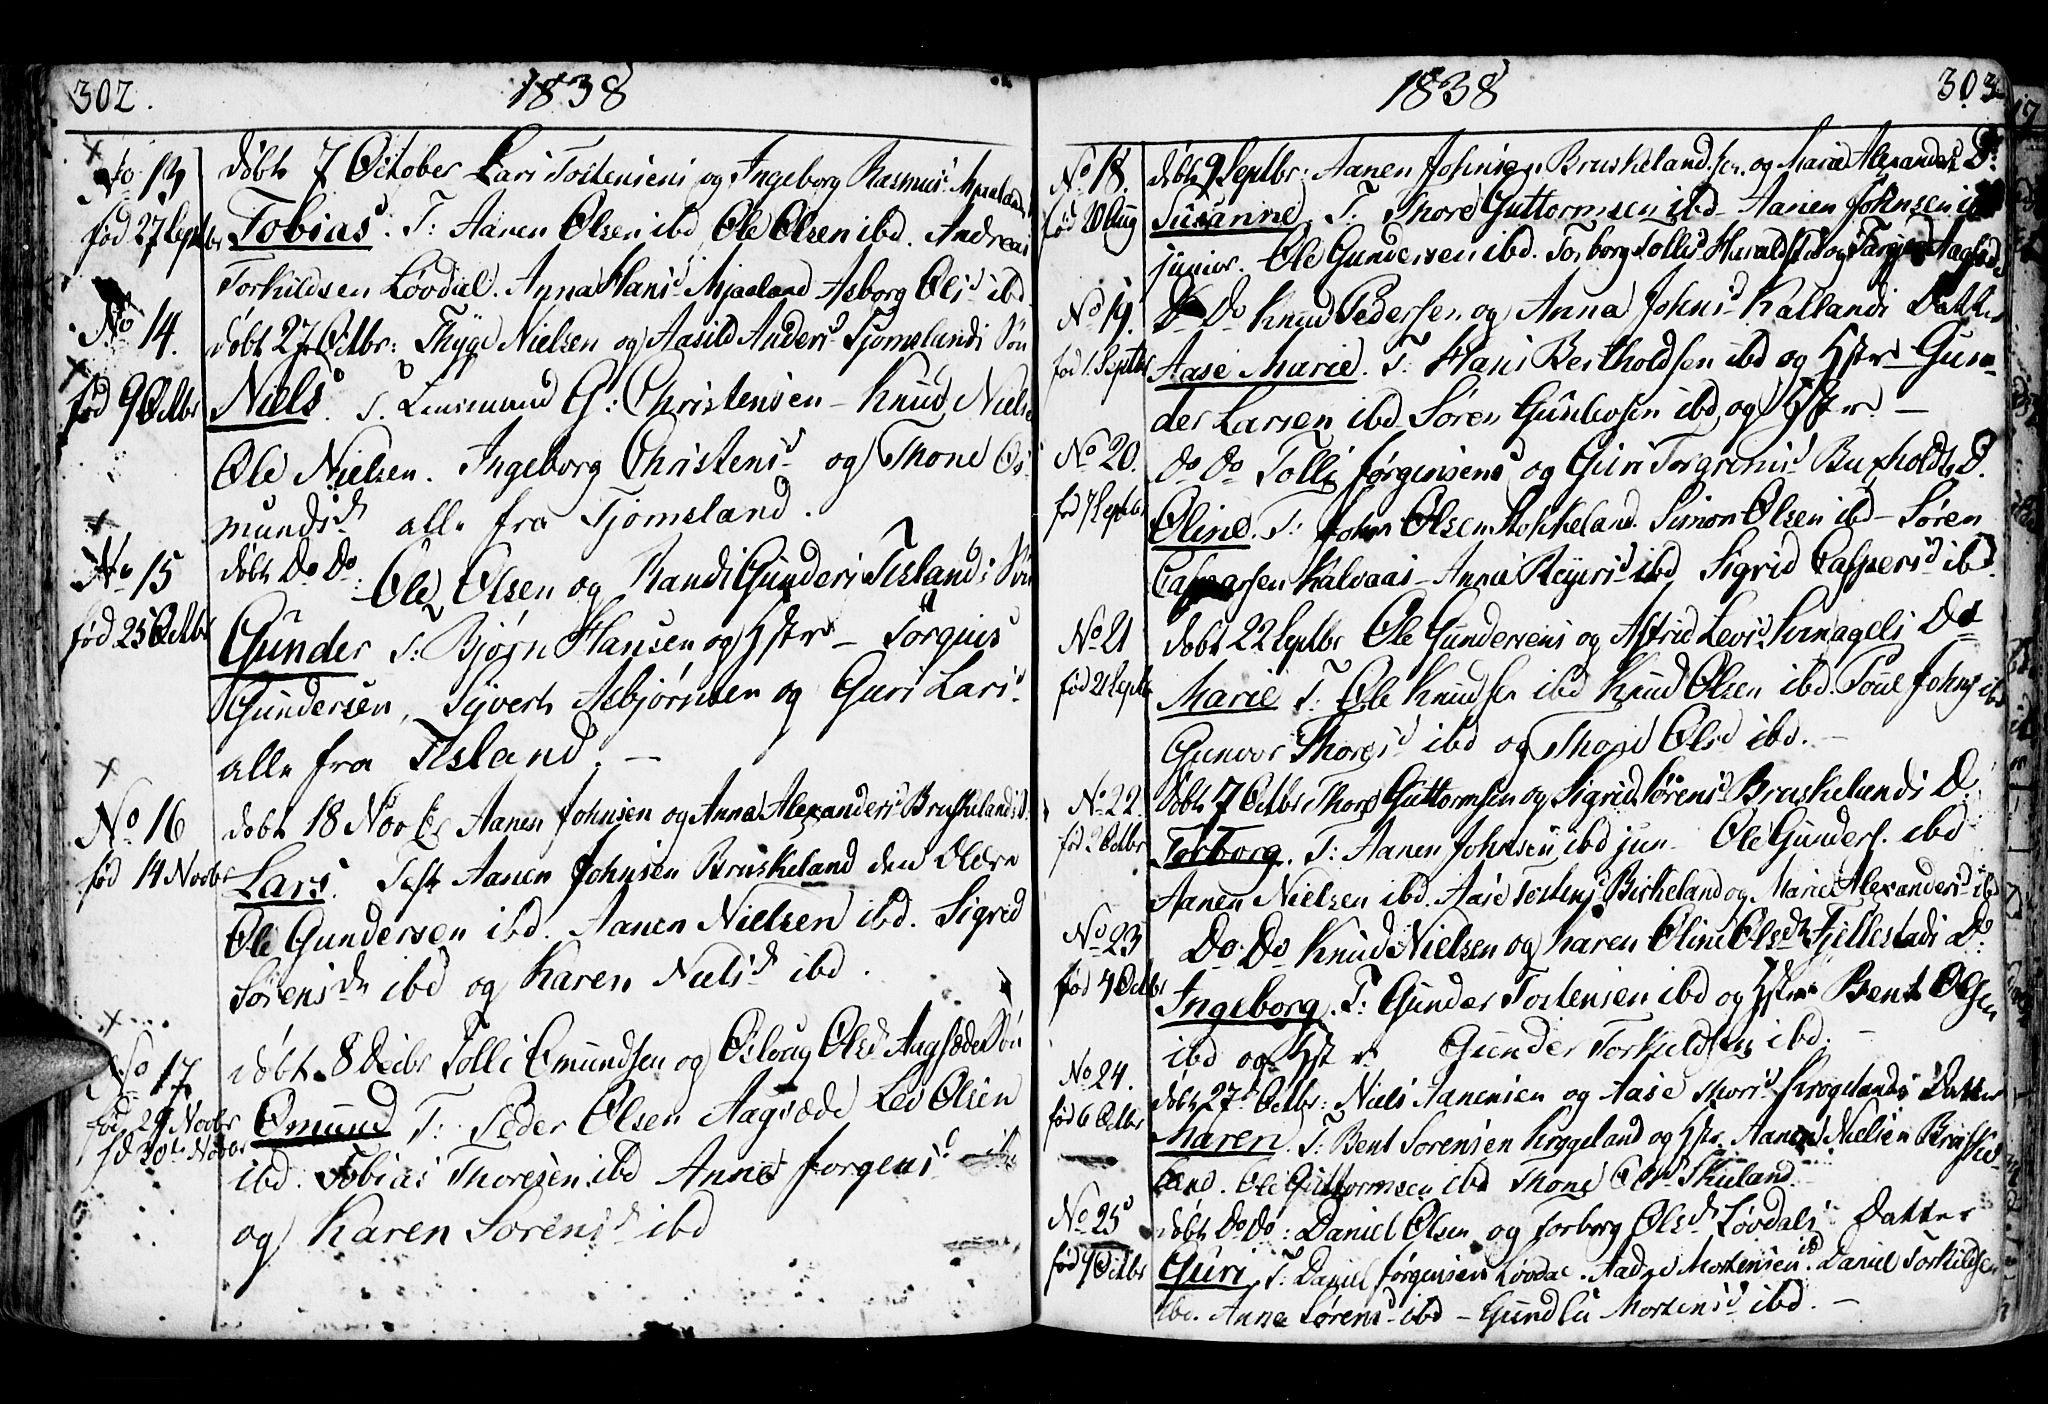 302.
1838
No 13
død 7 October Lars Tostensens og Ingeborg Rasmusd Mjaalands
fød 27 Septbr Tobias. T: Aanen Olsen ibd Ole Olsen ibd. Andreas
Torkildsen Løvdal. Anna Hansd Mjaaland Asborg Olsd ibd
No 14.
døbt 27 Octbr: Thyge Nielsen og Aasild Andersd Tjomslands Søn
fød 9 Octbr Niels. T. Lensmand G: Christensen - Knud Niels
Ole Nielsen. Ingeborg Christensd og Thone Os-
mundsd alle fra Tjomsland.
No 15
døbt Do Do: Ole Olsen og Randi Gunders Tisland: Søn
fød 25 Octbr Gunder T: Bjørn Hansen og Hstr - Torquis
Gundersen, Syvert Asbjørnsen og Guri Larsd
alle fra Tisland. -
No 16
døbt 18 Novbr Aanen Johnsen og Anna Alexandersd Bruskelands S.
fød 14 Novbr Lars. Test Aanen Johnsen Bruskeland den Ældre
Ole Gundersen ibd. Aanen Nielsen ibd. Sigrid
Sørensdr ibd og Karen Nielsd ibd.
No 17
døbt 8 Decbr Tolli Omundsen og Oslaug Olsd Aagsæde Søn
fød 29 Novbr Omund T: Peder Olsen Aagsæde Lev Olsen
fd 30te Novbr
ibd. Tobias Thoresen ibd Anne Jorgensd ibd
og Karen Sorensd ibd
1838
303
No 18. døbt 9 Septbr: Aanen Johnsen Bruskeland sen. og Marie Alexandersd D:
fød 20 Aug Susanne, T. Thore Guttormsen ibd - Aanen Johnsen ibd
junior. Ole Gundersen ibd. Torborg Tollisd Haraldstad og Aagsæde
No 19. Do Do Knud Pedersen og Anna Johnsd Kallands Datter
fød 1. Septbr Aase Marie. T: Hans Bertholdsen ibd og Hstr - Gun-
der Larsen ibd Søren Gundersen ibd og Hstr. -
No 20. Do Do Tolli Jørgensens og Guri Torgrimsd Buxholdts D.
fød 7 Septbr Oline. T: John Olsen Stokkeland. Simon Olsen ibd - Søren
Caspersen Kalvaas - Anne Reyersd ibd Sigrid Caspersd ibd.
No 21 døbt 22 Septbr Ole Gundersens og Astrid Levisd Kunagels Do
fød 21 Septbr Marie T: Ole Knudsen ibd Knud Olsen ibd. Poul Johns ibd
Gunvor Thoresd ibd og Thone Olsd ibd. -
No 22. døbt 7 Octbr Thore Guttormsen og Sigrid Sørensd Bruskelands D.
fød 2 Octbr Torborg. T: Aanen Johnsen ibd jun - Ole Gunders. ibd
Aanen Nielsen ibd. Aase Tostensd Birkeland og Marie Alexandersd ibd
No 23 Do Do Knud Nielsen og Karen Oline Olsdr Fjellestads D.
fød 4 Octbr Ingeborg. T: Gunder Tostensen ibd og Hstr Bent Olsen
ibd og Hstr Gunder Torkildsen ibd. -
No 24. døbt 27de Octbr: Niels Aanensen og Aase Thorsd Krogelands Datter
fød 6 Octbr Maren. T: Bent Sorensen Krogeland og Hstr. Aanen Nielsen Bruske-
land. Ole Guttormsen ibd Thone Olsd Skieland.
No 25 døbt Do Do: Daniel Olsen og Torborg Olsdr Løvdals Datter
fød 9 Octbr Guri T: Daniel Jørgensen Løvdal. Aadne Mortensen ibd. Daniel Torkildsen
ibd. Anne Sørensd ibd - Gundlu Mortensd ibd. -